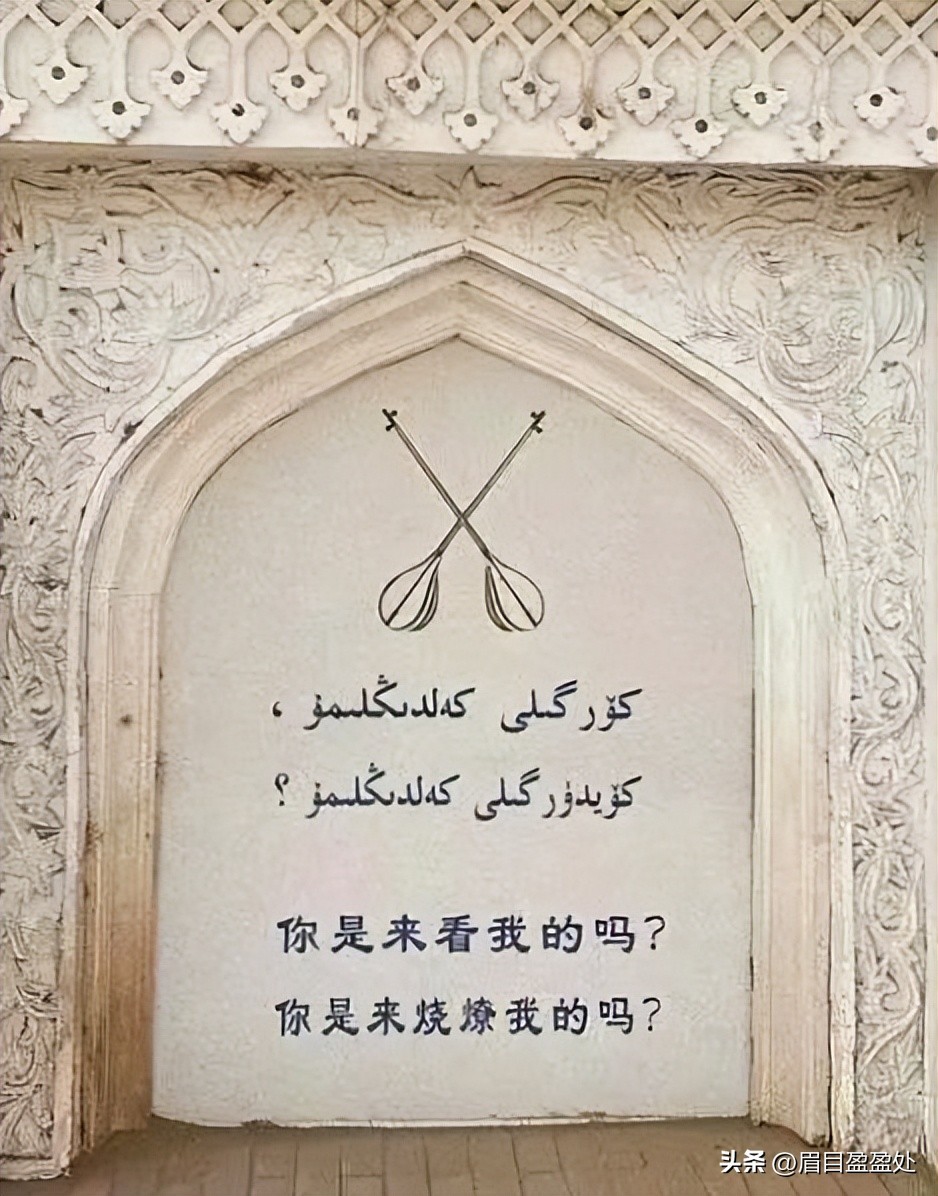 كۆرگىلى كەلدىڭلىمۇ ،
كۆيدۈرگىلى كەلدىڭلىمۇ ؟
你是来看我的吗?
你是来烧燎我的吗?
头条 @眉目盈盈处